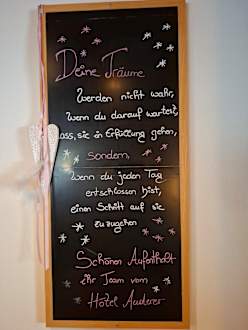 Deine Träume
Werden nicht wahr,
Wenn du darauf wartest,
dass, sie in Erfüllung gehen,
sondern,
Wenn du jeden Tag
entschlossen bist,
einen Schritt auf sie
zuzugehen
Schönen Aufenthalt
ihr Team vom
Hotel